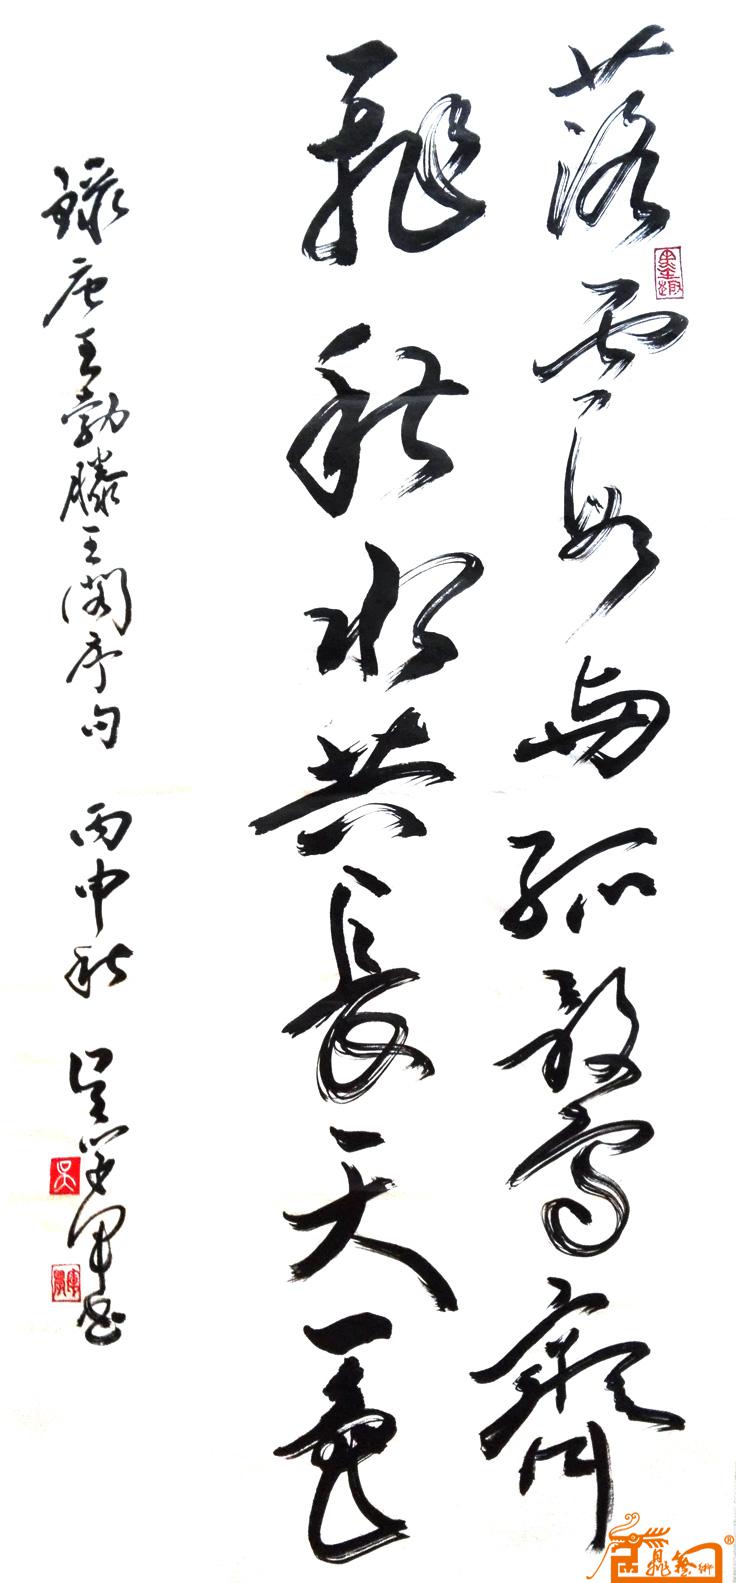 落霞与孤鹜齐
飞秋水共长天一色
録唐王勃滕王阁序句 丙申秋 吴学军书
墨趣
吴